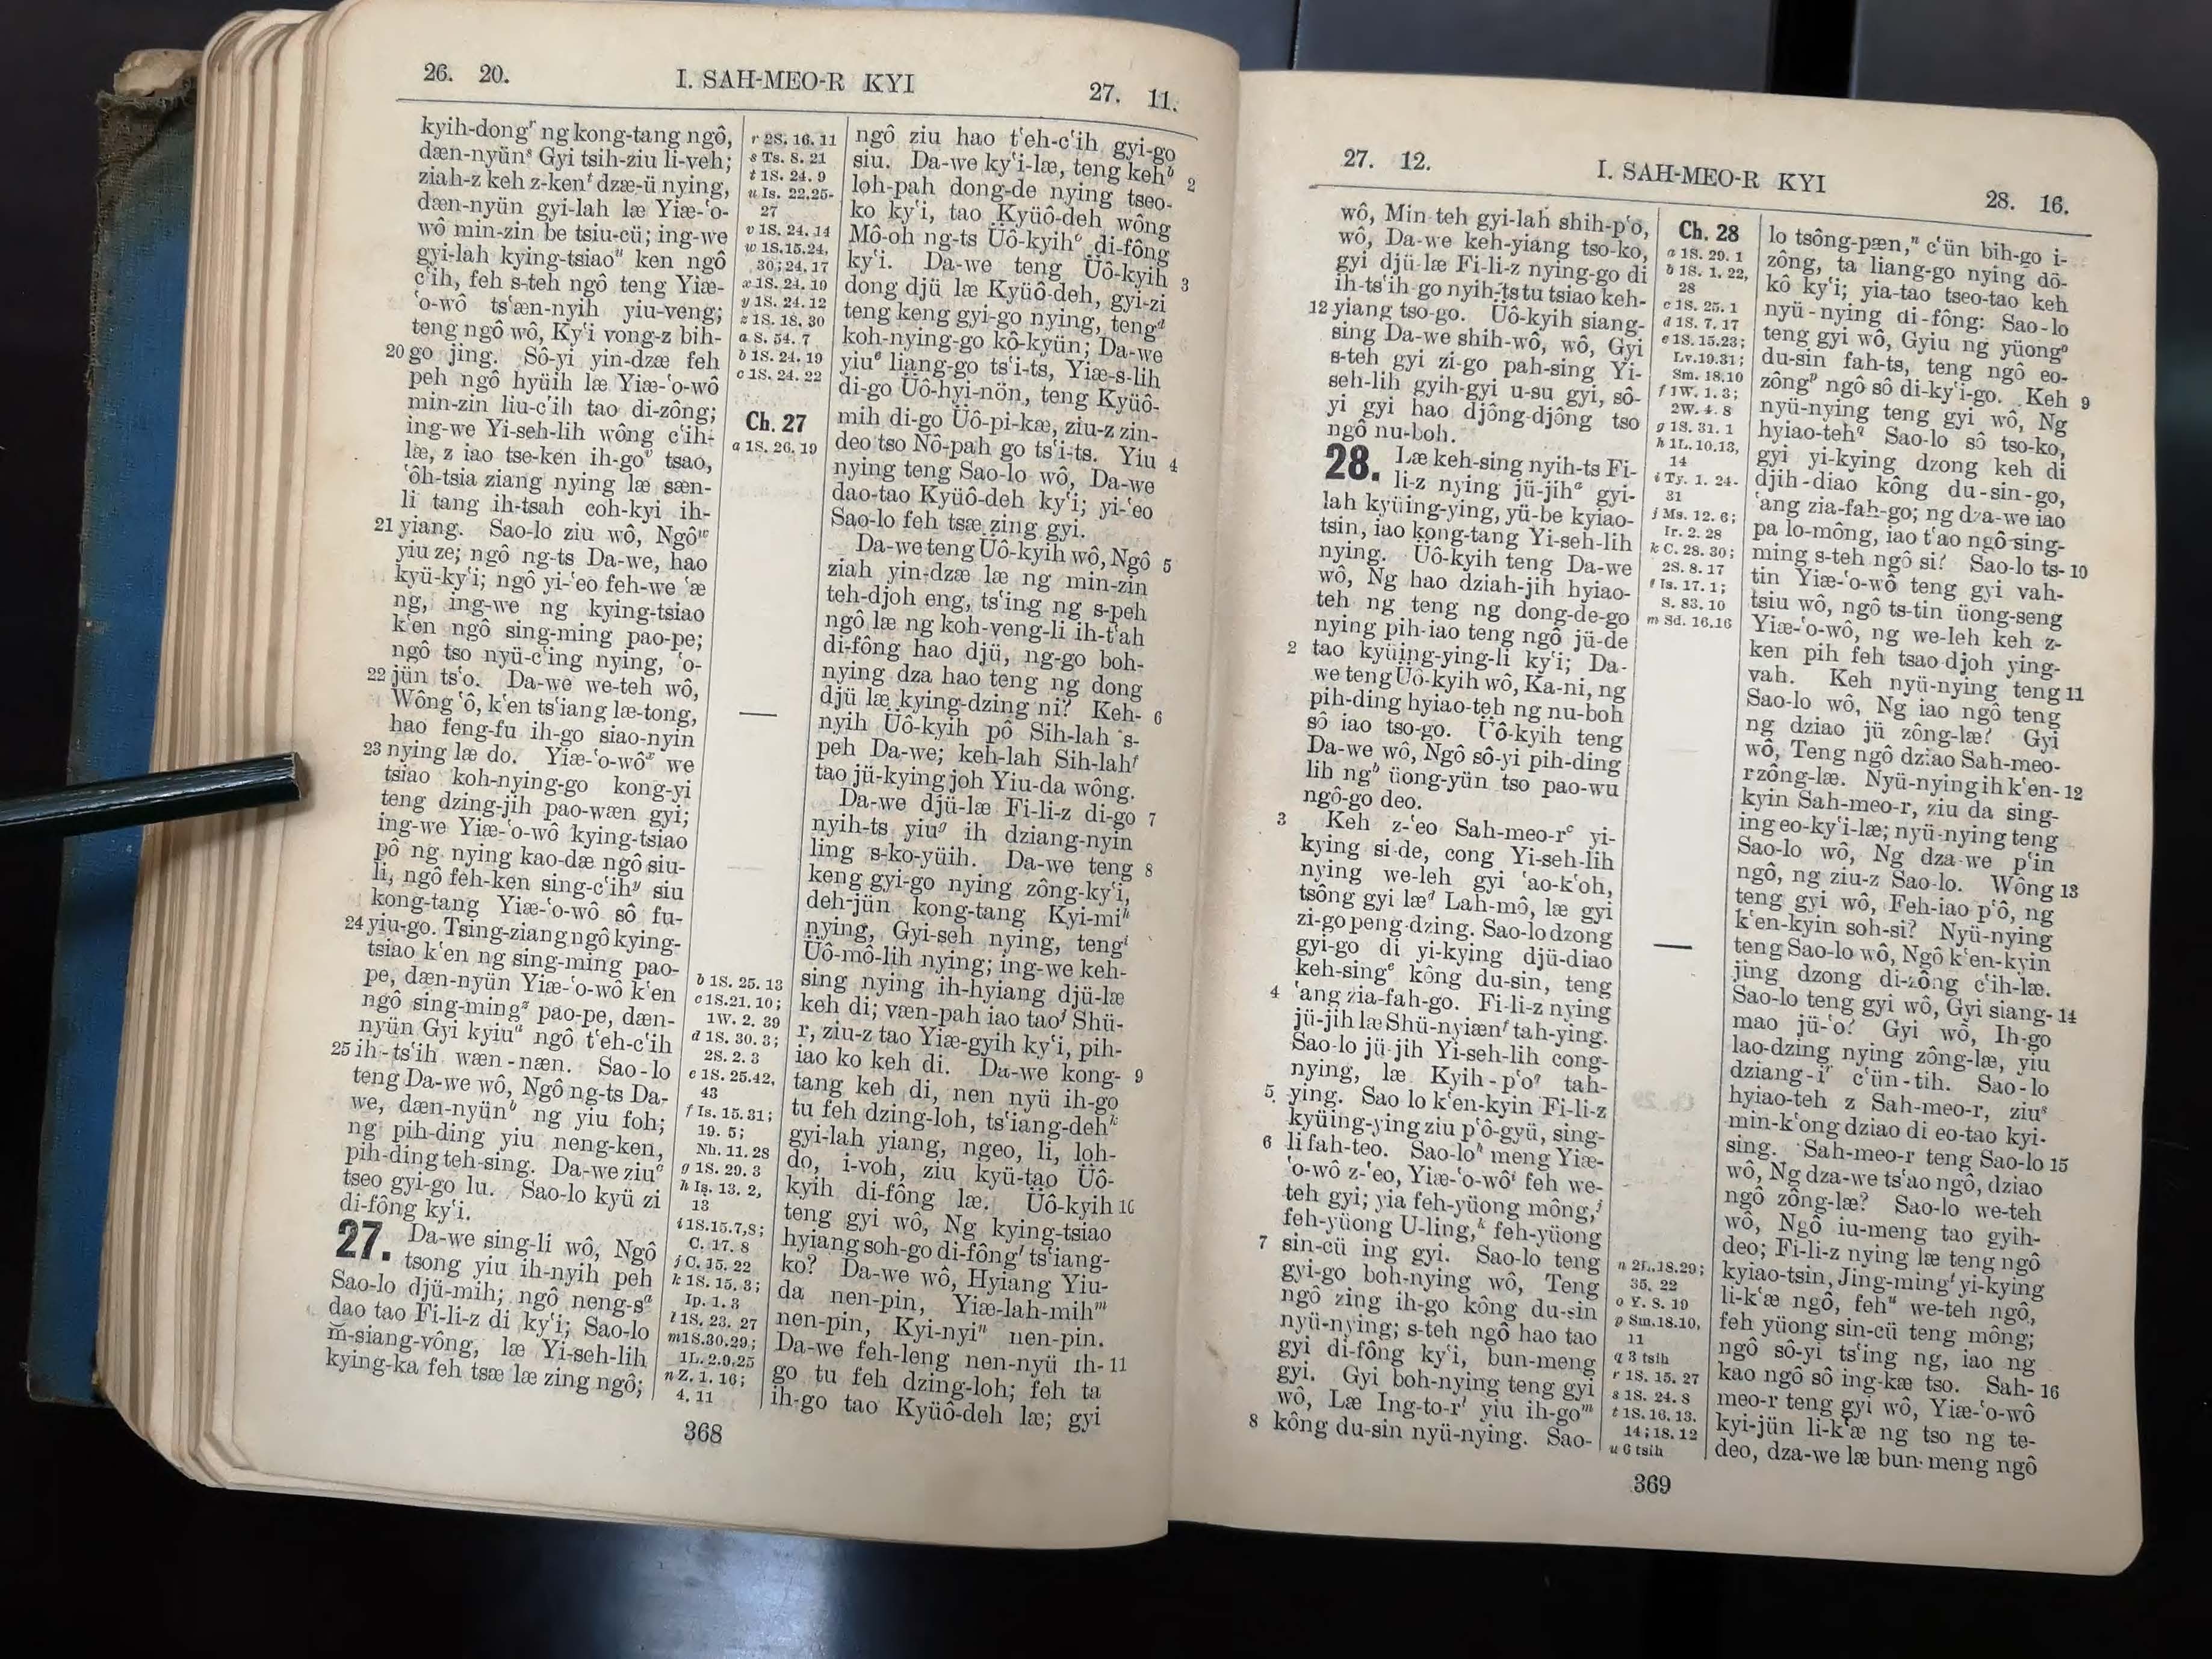 26. 20.
I. SAH-MEO-R KYI
27. 11.
kyih-dongʳ ng kong-tang ngô,
dæn-nyünˢ Gyi tsih-ziu li-veh;
ziah-z keh z-kenᵗ dzæ-ü nying,
dæn-nyün gyi-lah læ Yiæ-ʻo-
wô min-zin be tsiu-cü; ing-we
gyi-lah kying-tsiaoᵘ ken ngô
cʻih, feh s-teh ngô teng Yiæ-
ʻo-wô tsʻæn-nyih yiu-veng;
teng ngô wô, Kyʻi vong-z bih-
20 go jing. Sô-yi yin-dzæ feh
peh ngô hyüih læ Yiæ-ʻo-wô
min-zin liu-cʻih tao di-zông;
ing-we Yi-seh-lih wông cʻih-
læ, z iao tse-ken ih-goᵛ tsao,
ʻôh-tsia ziang nying læ sæn-
li tang ih-tsah coh-kyi ih-
21 yiang. Sao-lo ziu wô, Ngôʷ
yiu ze; ngô ng-ts Da-we, hao
kyü-kyʻi; ngô yi-ʻeo feh-we ʻæ
ng, ing-we ng kying-tsiao
kʻen ngô sing-ming pao-pe;
ngô tso nyü-cʻing nying, ʻo-
22 jün tsʻo. Da-we we-teh wô,
Wông ʻô, kʻen tsʻiang læ-tong,
hao feng-fu ih-go siao-nyin
23 nying læ do. Yiæ-ʻo-wôˣ we
tsiao koh-nying-go kong-yi
teng dzing-jih pao-wæn gyi;
ing-we Yiæ-ʻo-wô kying-tsiao
pô ng nying kao-dæ ngô siu-
li, ngô feh-ken sing-cʻihʸ siu
kong-tang Yiæ-ʻo-wô sô fu-
24 yiu-go. Tsing-ziang ngô kying-
tsiao kʻen ng sing-ming pao-
pe, dæn-nyün Yiæ-ʻo-wô kʻen
ngô sing-mingᶻ pao-pe, dæn-
nyün Gyi kyiuᵃ ngô tʻeh-cʻih
25 ih-tsʻih wæn-næn. Sao-lo
teng Da-we wô, Ngô ng-ts Da-
we, dæn-nyünᵇ ng yiu foh;
ng pih-ding yiu neng-ken,
pih-ding teh-sing. Da-we ziuᶜ
tseo gyi-go lu. Sao-lo kyü zi
di-fông kyʻi.
27. Da-we sing-li wô, Ngô
tsong yiu ih-nyih peh
Sao-lo djü-mih; ngô neng-sᵃ
dao tao Fi-li-z di kyʻi; Sao-lo
m̄-siang-vông, læ Yi-seh-lih
kying-ka feh tsæ læ zing ngô;
r 2S. 16. 11
s Ts. 8. 21
t 1S. 24. 9
u Is. 22.25-
27
v 1S. 24. 14
w 1S.15.24,
30; 24. 17
x 1S. 24. 19
y 1S. 24. 12
z 1S. 18. 30
a S. 54. 7
b 1S. 24. 19
c 1S. 24. 22
Ch. 27
a 1S. 26. 19
b 1S. 25. 13
c 1S.21.10;
1W. 2. 39
d 1S. 30. 3;
2S. 2. 3
e 1S. 25.42,
43
f Is. 15.31;
19. 5;
Nh. 11. 28
g 1S. 29. 3
h Is. 13. 2,
13
i 1S.15.7,8;
C. 17. 8
j C. 15. 22
k 1S. 15. 3;
Ip. 1. 3
l 1S. 23. 27
m 1S.30.29;
1L. 2.9,25
n Z. 1. 16;
4. 11
ngô ziu hao tʻeh-cʻih gyi-go
siu. Da-we kyʻi-læ, teng kehᵇ 2
loh-pah dong-de nying tseo-
ko kyʻi, tao Kyüô-deh wông
Mô-oh ng-ts Üô-kyihᶜ di-fông
kyʻi. Da-we teng Üô-kyih 3
dong djü læ Kyüô-deh, gyi-zi
teng keng gyi-go nying, tengᵈ
koh-nying-go kô-kyün; Da-we
yiuᵉ liang-go tsʻi-ts, Yiæ-s-lih
di-go Üô-hyi-nön, teng Kyüô-
mih di-go Üô-pi-kæ, ziu-z zin-
deo tso Nô-pah go tsʻi-ts. Yiu 4
nying teng Sao-lo wô, Da-we
dao-tao Kyüô-deh kyʻi; yi-ʻeo
Sao-lo feh tsæ zing gyi.
Da-we teng Üô-kyih wô, Ngô 5
ziah yin-dzæ læ ng min-zin
teh-djoh eng, tsʻing ng s-peh
ngô læ ng koh-veng-li ih-tʻah
di-fông hao djü, ng-go boh-
nying dza hao teng ng dong
djü læ kying-dzing ni? Keh- 6
nyih Üô-kyih pô Sih-lah s-
peh Da-we; keh-lah Sih-lahᶠ
tao jü-kying joh Yiu-da wông.
Da-we djü-læ Fi-li-z di-go 7
nyih-ts yiuᵍ ih dziang-nyin
ling s-ko-yüih. Da-we teng 8
keng gyi-go nying zông-kyʻi,
deh-jün kong-tang Kyi-miʰ
nying, Gyi-seh nying, tengⁱ
Üô-mô-lih nying; ing-we keh-
sing nying ih-hyiang djü-læ
keh di; væn-pah iao taoʲ Shü-
r, ziu-z tao Yiæ-gyih kyʻi, pih-
iao ko keh di. Da-we kong- 9
tang keh di, nen nyü ih-go
tu feh dzing-loh, tsʻiang-dehᵏ
gyi-lah yiang, ngeo, li, loh-
do, i-voh, ziu kyü-tao Üô-
kyih di-fông læ. Üô-kyih 10
teng gyi wô, Ng kying-tsiao
hyiang soh-go di-fôngˡ tsʻiang-
ko? Da-we wô, Hyiang Yiu-
da nen-pin, Yiæ-lah-mihᵐ
nen-pin, Kyi-nyiⁿ nen-pin.
Da-we feh-leng nen-nyü ih- 11
go tu feh dzing-loh; feh ta
ih-go tao Kyüô-deh læ; gyi
368
27. 12.
I. SAH-MEO-R KYI
28. 16.
wô, Min-teh gyi-lah shih-pʻo,
wô, Da-we keh-yiang tso-ko,
gyi djü-læ Fi-li-z nying-go di
ih-tsʻih-go nyih-ts tu tsiao keh-
12 yiang tso-go. Üô-kyih siang-
sing Da-we shih-wô, wô, Gyi
s-teh gyi zi-go pah-sing Yi-
seh-lih gyih-gyi u-su gyi, sô-
yi gyi hao djông-djông tso
ngô nu-boh.
28. Læ keh-sing nyih-ts Fi-
li-z nying jü-jihᵃ gyi-
lah kyüing-ying, yü-be kyiao-
tsin, iao kong-tang Yi-seh-lih
nying. Üô-kyih teng Da-we
wô, Ng hao dziah-jih hyiao-
teh ng teng ng dong-de-go
nying pih-iao teng ngô jü-de
2 tao kyüing-ying-li kyʻi; Da-
we teng Üô-kyih wô, Ka-ni, ng
pih-ding hyiao-teh ng nu-boh
sô iao tso-go. Üô-kyih teng
Da-we wô, Ngô sô-yi pih-ding
lih ngᵇ üong-yün tso pao-wu
ngô-go deo.
3 Keh z-ʻeo Sah-meo-rᶜ yi-
kying si-de, cong Yi-seh-lih
nying we-leh gyi ʻao-kʻoh,
tsông gyi læᵈ Lah-mô, læ gyi
zi-go peng-dzing. Sao-lo dzong
gyi-go di yi-kying djü-diao
keh-singᵉ kông du-sin, teng
4 ʻang zia-fah-go. Fi-li-z nying
jü-jih læ Shü-nyiænᶠ tah-ying.
Sao-lo jü-jih Yi-seh-lih cong-
nying, læ Kyih-pʻoᵍ tah-
5 ying. Sao-lo kʻen-kyin Fi-li-z
kyüing-ying ziu pʻô-gyü, sing-
6 li fah-teo. Sao-loʰ meng Yiæ-
ʻo-wô z-ʻeo, Yiæ-ʻo-wôⁱ feh we-
teh gyi; yia feh-yüong mông,ʲ
feh-yüong U-ling,ᵏ feh-yüong
7 sin-cü ing gyi. Sao-lo teng
gyi-go boh-nying wô, Teng
ngô zing ih-go kông du-sin
nyü-nying; s-teh ngô hao tao
gyi di-fông kyʻi, bun-meng
gyi. Gyi boh-nying teng gyi
wô, Læ Ing-to-rˡ yiu ih-goᵐ
8 kông du-sin nyü-nying. Sao-
Ch. 28
a 1S. 29. 1
b 1S. 1. 22,
28
c 1S. 25. 1
d 1S. 7. 17
e 1S. 15.23;
Lv.19.31;
Sm. 18.10
f 1W. 1. 3;
2W. 4. 8
g 1S. 31. 1
h 1L. 10.13,
14
i Ty. 1. 24-
31
j Ms. 12. 6;
Ir. 2. 28
k C. 28. 30;
2S. 8. 17
l Is. 17. 1;
S. 83. 10
m Sd. 16.16
n 2L.18.29;
35. 22
o Y. 8. 19
p Sm.18.10,
11
q 3 tsih
r 1S. 15. 27
s 1S. 24. 8
t 1S. 16. 13,
14; 18. 12
u 6 tsih
lo tsông-pæn,ⁿ cʻün bih-go i-
zông, ta liang-go nying dô-
kô kyʻi; yia-tao tseo-tao keh
nyü-nying di-fông: Sao-lo
teng gyi wô, Gyiu ng yüongᵒ
du-sin fah-ts, teng ngô eo-
zôngᵖ ngô sô di-kyʻi-go. Keh 9
nyü-nying teng gyi wô, Ng
hyiao-teh𐞥 Sao-lo sô tso-ko,
gyi yi-kying dzong keh di
djih-diao kông du-sin-go,
ʻang zia-fah-go; ng dza-we iao
pa lo-mông, iao tʻao ngô sing-
ming s-teh ngô si? Sao-lo ts- 10
tin Yiæ-ʻo-wô teng gyi vah-
tsiu wô, ngô ts-tin üong-seng
Yiæ-ʻo-wô, ng we-leh keh z-
ken pih feh tsao-djoh ying-
vah. Keh nyü-nying teng 11
Sao-lo wô, Ng iao ngô teng
ng dziao jü zông-læ? Gyi
wô, Teng ngô dziao Sah-meo-
r zông-læ. Nyü-nying ih kʻen- 12
kyin Sah-meo-r, ziu da sing-
ing eo-kyʻi-læ; nyü-nying teng
Sao-lo wô, Ng dza-we pʻin
ngô, ng ziu-z Sao-lo. Wông 13
teng gyi wô, Feh-iao pʻô, ng
kʻen-kyin soh-si? Nyü-nying
teng Sao-lo wô, Ngô kʻen-kyin
jing dzong di-zông cʻih-læ.
Sao-lo teng gyi wô, Gyi siang- 14
mao jü-ʻo? Gyi wô, Ih-go
lao-dzing nying zông-læ, yiu
dziang-iʳ cʻün-tih. Sao-lo
hyiao-teh z Sah-meo-r, ziuˢ
min-kʻong dziao di eo-tao kyi-
sing. Sah-meo-r teng Sao-lo 15
wô, Ng dza-we tsʻao ngô, dziao
ngô zông-læ? Sao-lo we-teh
wô, Ngô iu-meng tao gyih-
deo; Fi-li-z nying læ teng ngô
kyiao-tsin, Jing-mingᵗ yi-kying
li-kʻæ ngô, fehᵘ we-teh ngô,
feh yüong sin-cü teng mông;
ngô sô-yi tsʻing ng, iao ng
kao ngô sô ing-kæ tso. Sah- 16
meo-r teng gyi wô, Yiæ-ʻo-wô
kyi-jün li-kʻæ ng tso ng te-
deo, dza-we læ bun-meng ngô
369